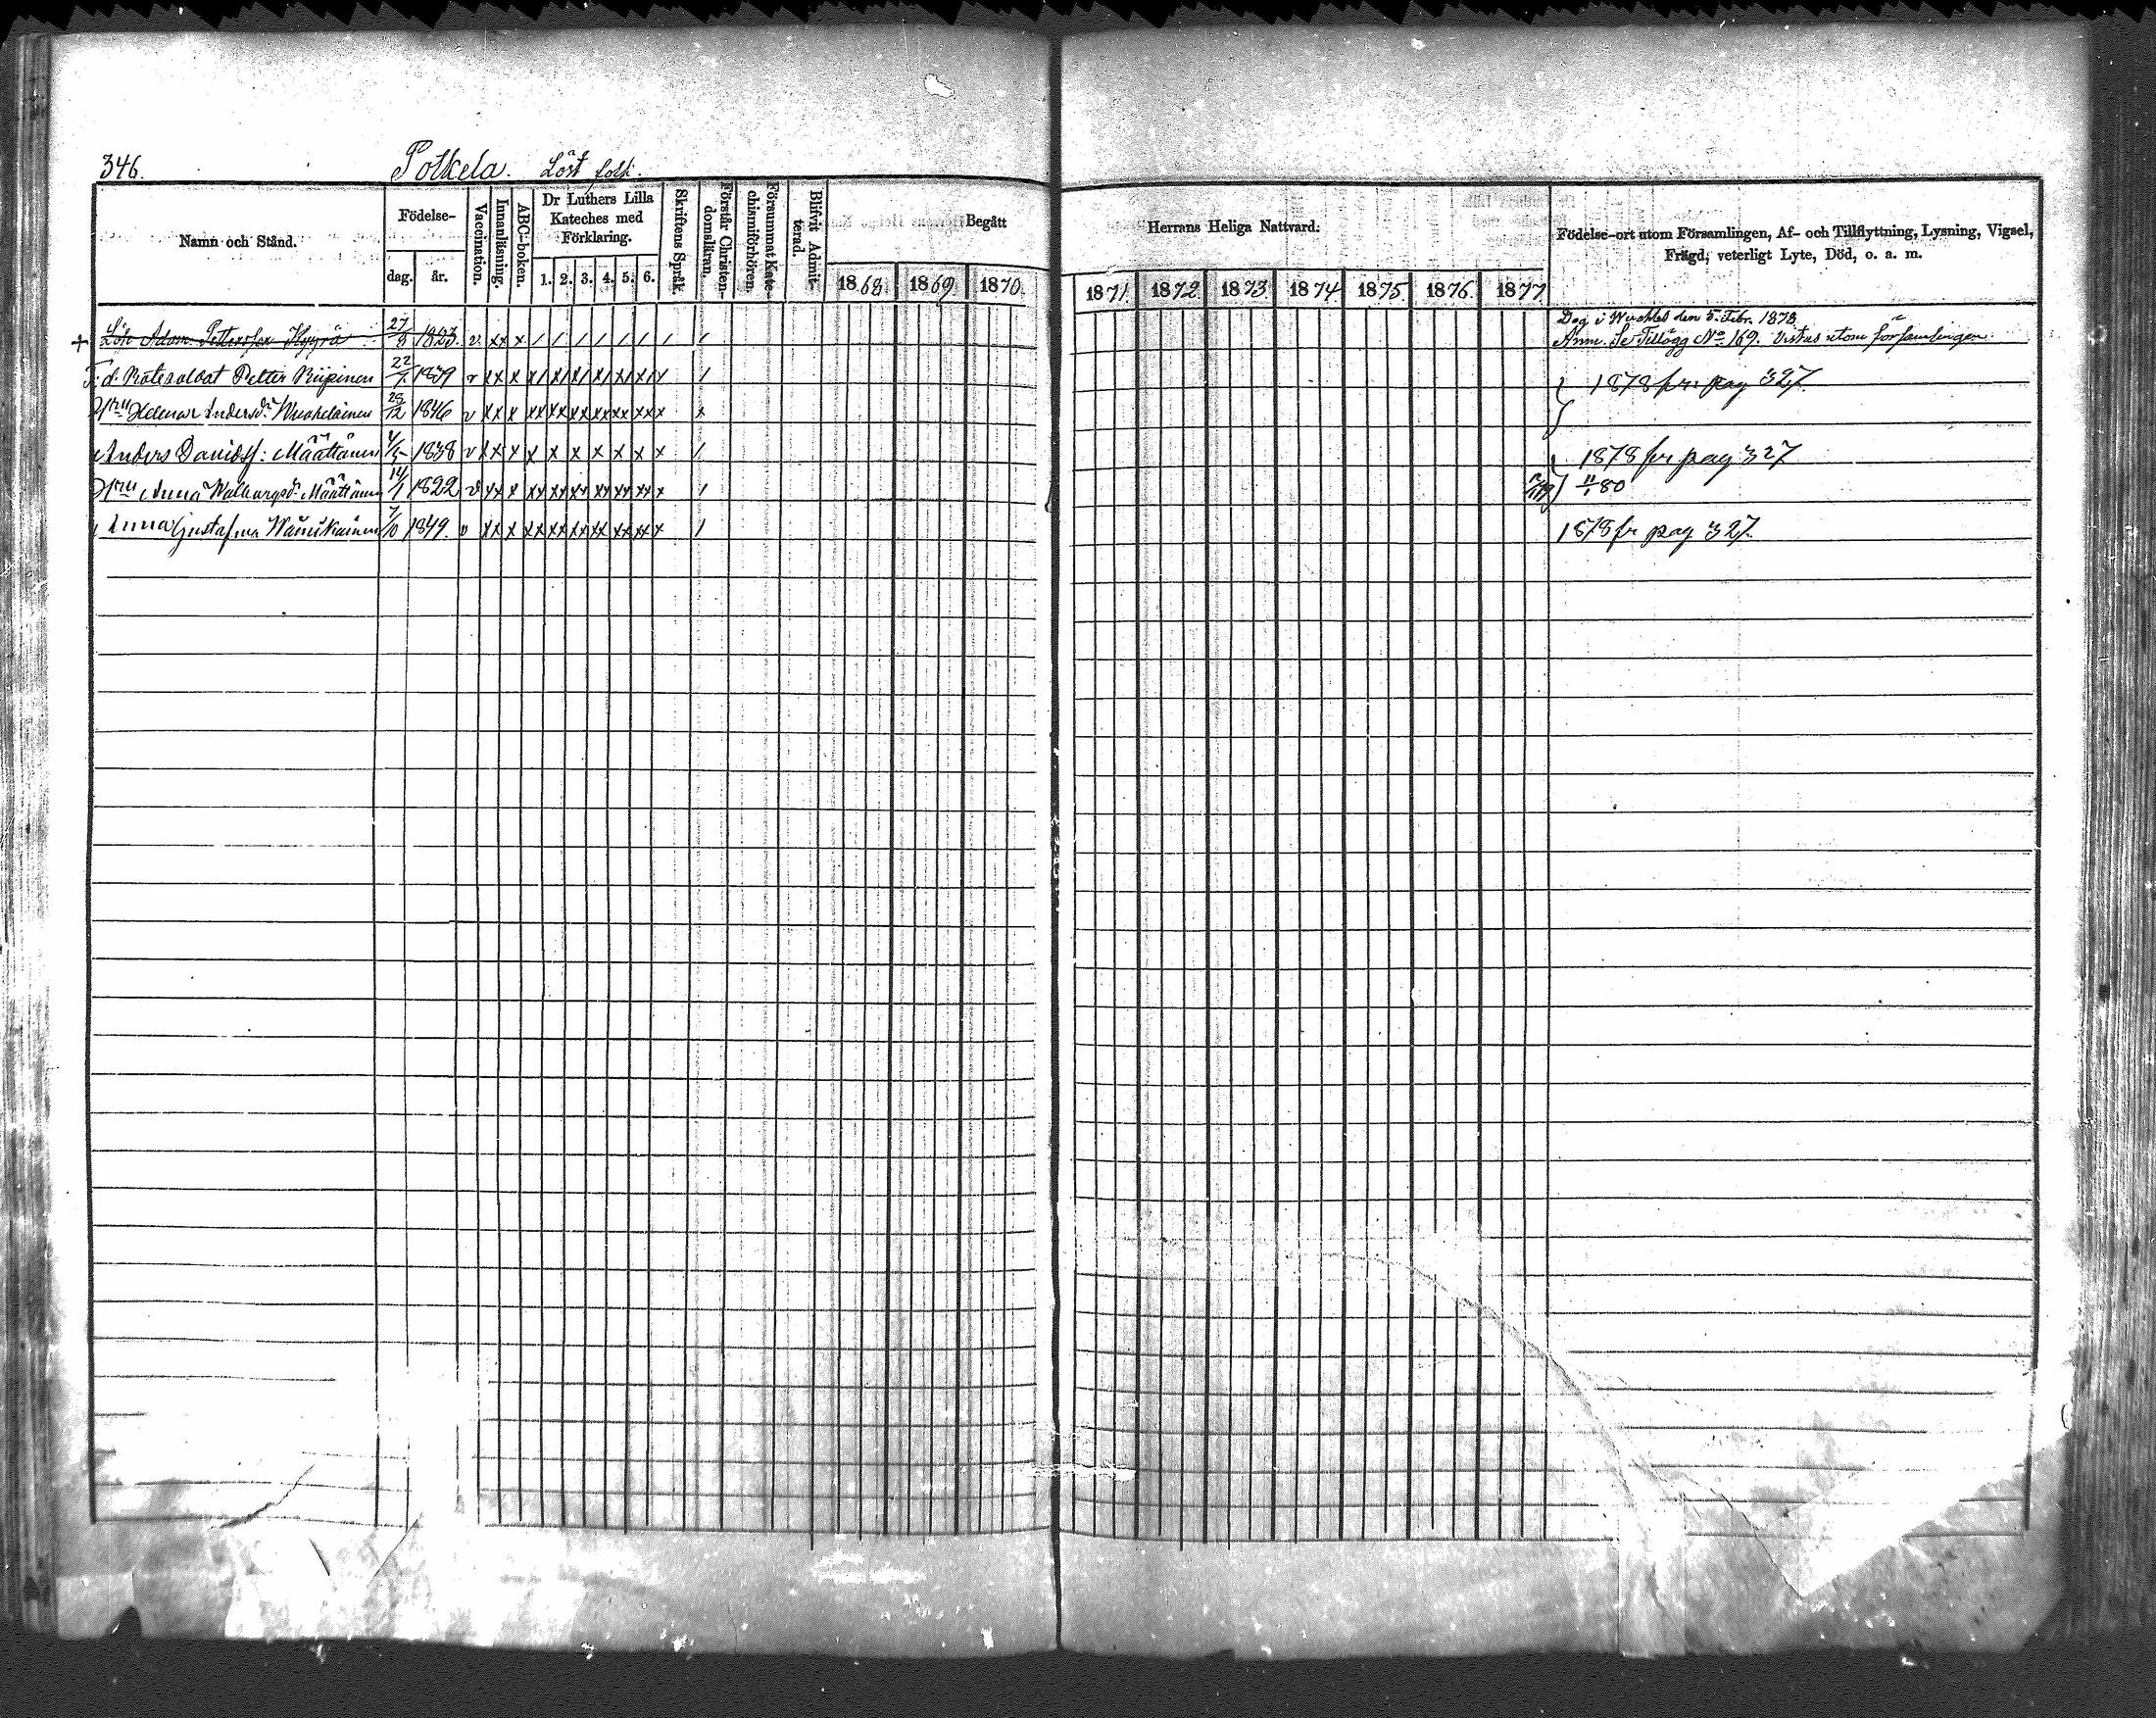 346. Potkela. Löst folk.
Namn och Stånd. Födelse- dag. år. Vaccination. Innanläsning. ABC-boken. Dr Luthers Lilla Kateches med Förklaring. 1. 2. 3. 4. 5. 6. Skriftens Språk. Förstår Christendomsläran. Försummat Katechismiförhören. Blifvit Admitterad. Begått 1868 1869. 1870.
Herrans Heliga Nattvard. 1871. 1872 1873 1874 1875. 1876. 1877 Födelse-ort utom Församlingen, Af- och Tillflyttning, Lysning, Vigsel, Frägd, veterligt Lyte, Död, o. a. m.
Dog i den 5. Febr. 1873
+ Lös Adam Pettersson Hyyrä 27/8 1823. v. x x x / / / / / / / / Anm. Se Tillägg No 169. Vistas utom församlingen.
F. d. Rotesoldat Petter Riipinen 22/7 1839 v x x x x/ x/ x/ x/ x/ x/ / 1878 fr pag 327.
Hru Helena Andersdr Wuohelainen 28/12 1846 v x x x xx xx xx xx xx xx x x
Anders Davidsf: Määttänen 4/5 1838 v x x x x x x x x x x / 1878 fr pag 327
Hru Anna Walborgsdr Määttänen 14/1 1822 v x x x xx xx xx xx xx xx x / 11/1 80
Anna Gustafina 7/10 1849. v x x x xx xx xx xx xx xx x / 1878 fr pag 327.